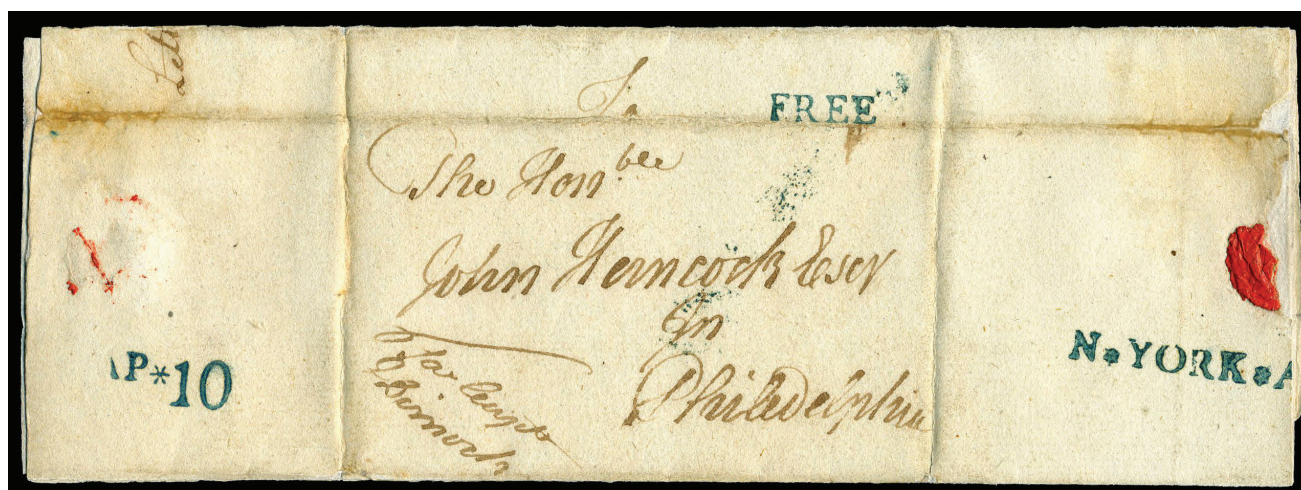 To
FREE
The Hon.ble
John Hancock Esqr
In
Philadelphia
Dimock
AP*10
N*YORK*A